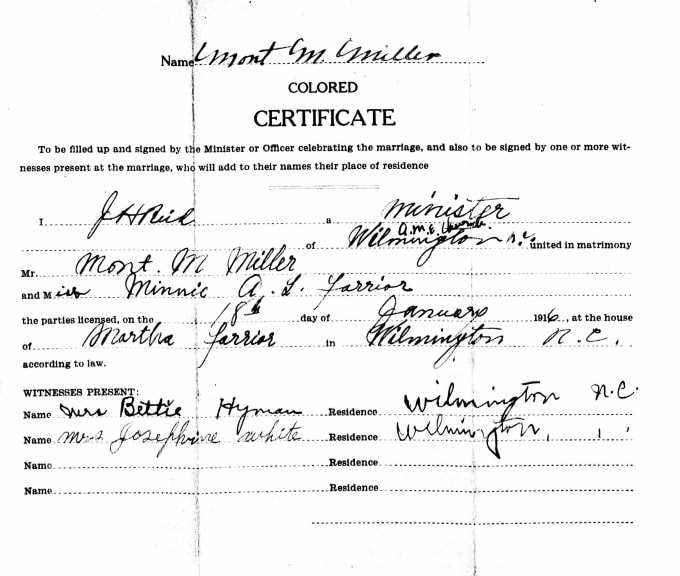 Name Mont M. Miller
COLORED
CERTIFICATE
To be filled up and signed by the Minister or Officer celebrating the marriage, and also to be signed by one or more wit-
nesses present at the marriage, who will add to their names their place of residence
I J H Reid a minister
A.M.E. Church
of Wilmington N.C. united in matrimony
Mr. Mont. M Miller
and Miss Minnie A. L. Farrior
the parties licensed, on the 18th day of January 1916, at the house
of Martha Farrior in Wilmington N.C.
according to law.
WITNESSES PRESENT:
Name Mrs Bettie Hyman Residence Wilmington N.C.
Name Mrs Josephine White Residence Wilmington, " "
Name Residence
Name Residence